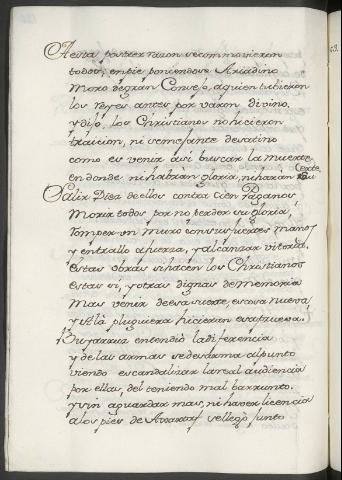 A esta postrer razon se commovieron
todos, en pie poniendose Ariadino
Moro de gran Consejo, a quien tubieron
los reyes antes por varon divino,
y dijo, los Christianos no hicieron
traicion, ni semejante desatino
como es venir a si buscar la muerte
en donde ni habran gloria, ni haran
Salir Diez de ellos contra cien Paganos
Morir todos por no perder su gloria,
Romper un muro con sus fuertes manos
y entrallo a fuerza, y alcanzar vitoria.
Estas obras si hacen los Christianos
estas si, y otras dignas de memoria
Mas venir de esa suerte, es cosa nueva
y Alà pluguiera hicieran esa prueva.
Bugarruz entendiò la diferencia
y de las armas se desarma al punto
viendo escandalizar la real audiencia
por ellas, del teniendo mal barrunto.
y sin aguardar mas, ni haver licencia
a los pies de se llegò junto